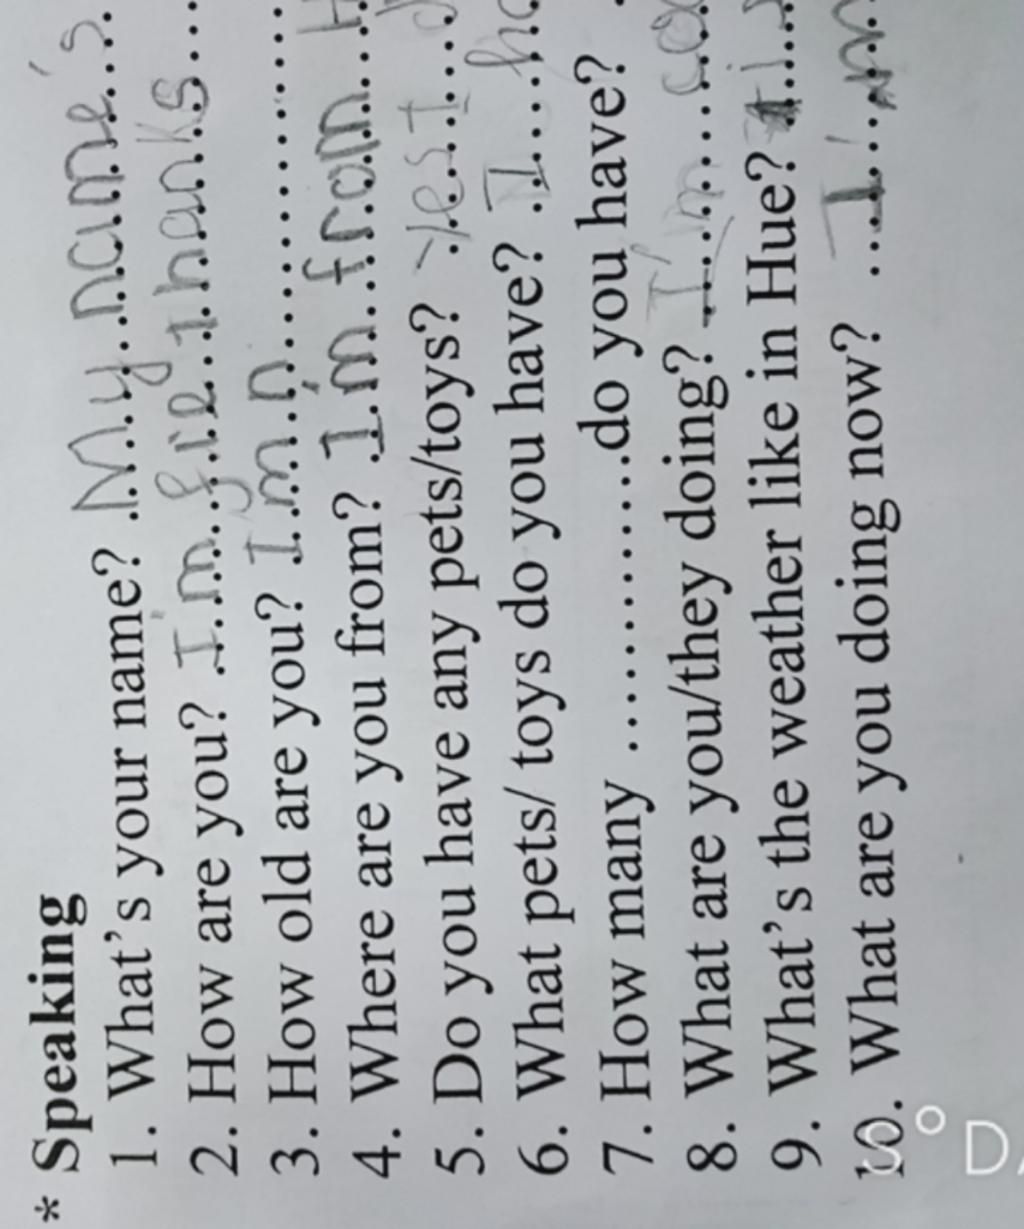 * Speaking
1. What's your name? My name's
2. How are you? I'm fie thanks
3. How old are you? I'm n
4. Where are you from? I'm from H
5. Do you have any pets/toys? Yes I
6. What pets/ toys do you have? I
7. How many ............... do you have?
8. What are you/they doing? I'm
9. What's the weather like in Hue?
10. What are you doing now? I'm